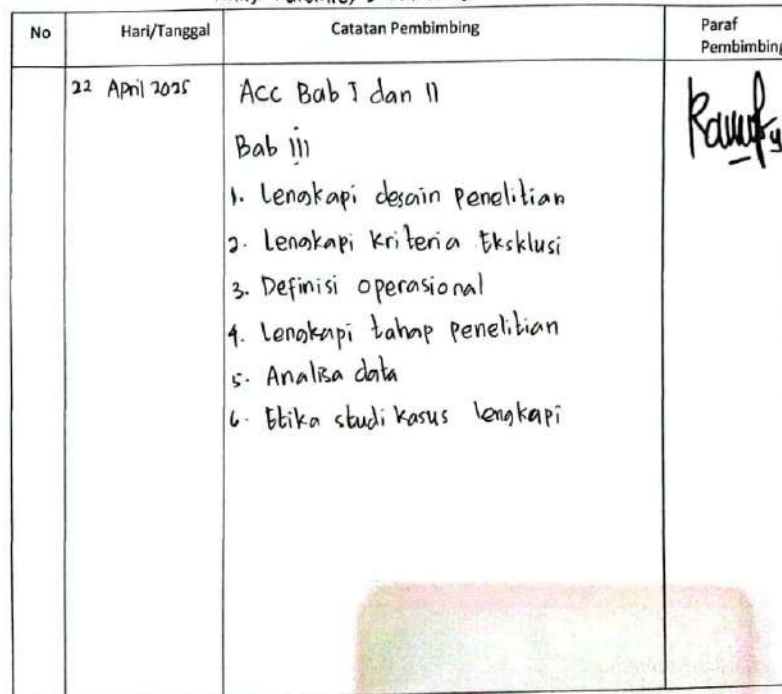 No
Hari/Tanggal
Catatan Pembimbing
Paraf
Pembimbing
22 April 2025
Acc Bab I dan II
Bab iii
1. Lengkapi desain penelitian
2. Lengkapi kriteria Eksklusi
3. Definisi operasional
4. Lengkapi tahap penelitian
5. Analisa data
6. Etika studi kasus lengkapi